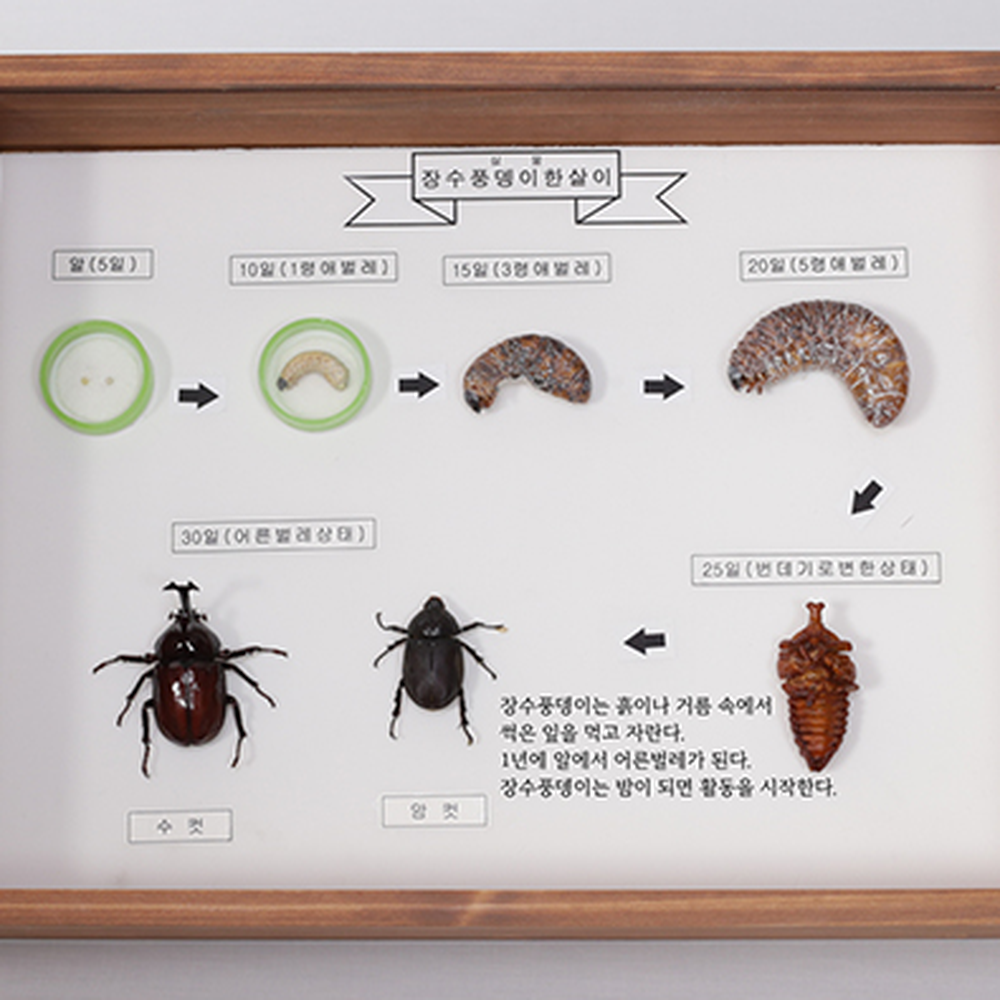 실 물
장수풍뎅이한살이
알(5일)
10일(1령애벌레)
15일(3령애벌레)
20일(5령애벌레)
30일(어른벌레상태)
25일(번데기로변한상태)
장수풍뎅이는 흙이나 거름 속에서
썩은 잎을 먹고 자란다.
1년에 알에서 어른벌레가 된다.
장수풍뎅이는 밤이 되면 활동을 시작한다.
수 컷
암 컷